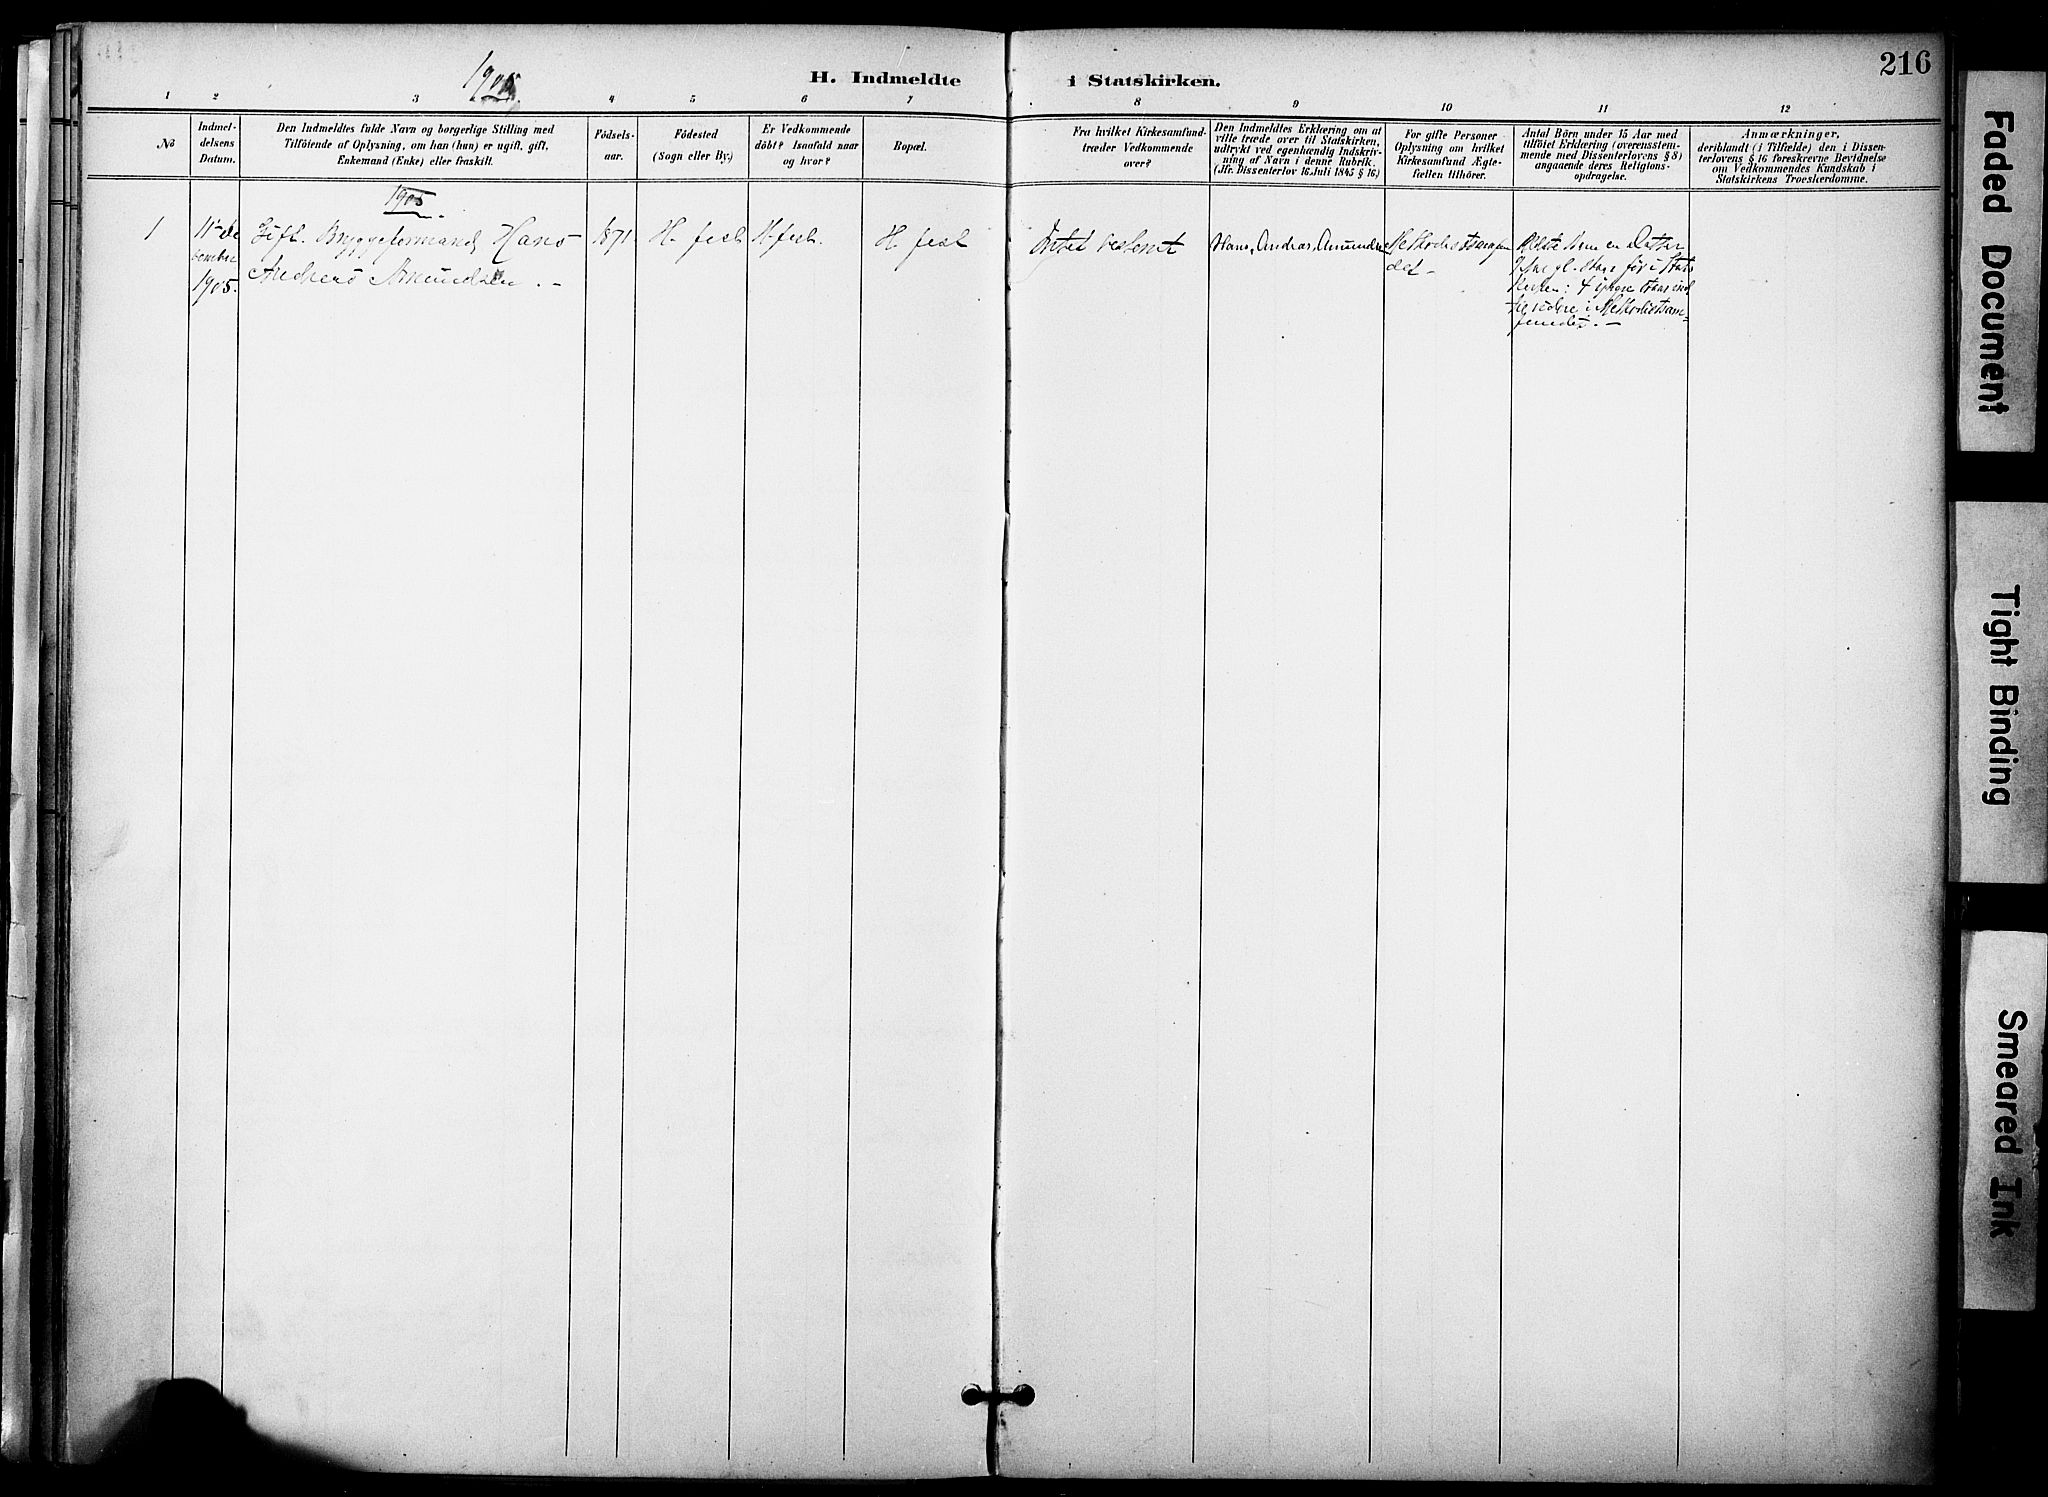 216
1905
H. Indmeldte i Statskirken.
1 2 3 4 5 6 7 8 9 10 11 12
No
Indmel-
delsens
Datum.
Den Indmeldtes fulde Navn og borgerlige Stilling med
Tilföiende af Oplysning, om han (hun) er ugift, gift,
Enkemand (Enke) eller fraskilt.
Födsels-
aar.
Födested
(Sogn eller By.)
Er Vedkommende
döbt? Isaafald naar
og hvor?
Bopæl.
Fra hvilket Kirkesamfund
træder Vedkommende
over?
Den Indmeldtes Erklæring om at
ville træde over til Statskirken,
udtrykt ved egenhændig Indskriv-
ning af Navn i denne Rubrik.
(Jfr. Dissenterlov 16. Juli 1845 § 16.)
For gifte Personer
Oplysning om hvilket
Kirkesamfund Ægte-
fællen tilhörer.
Antal Börn under 15 Aar med
tilföiet Erklæring (overensstem-
mende med Dissenterlovens § 8)
angaaende deres Religions-
opdragelse.
Anmærkninger,
deriblandt (i Tilfælde) den i Dissen-
terlovens § 16 foreskrevne Bevidnelse
om Vedkommendes Kundskab i
Statskirkens Troeslærdomme.
1905
1
11' de
cembre
1905.
Gift. Bryggeformand Hans
Anders Amundsen. -
1871
H. fest
H. fest.
H. fest
Intet bestemt
Hans, Andras, Amundsen
Methodistsamfun
det -
Ældste Barn en Datter
9 Aar gl. staar før i Stats
kirken: 4 yngre staar ind
Methodistsam=
fundet. -
Faded Document
Tight Binding
Smeared Ink